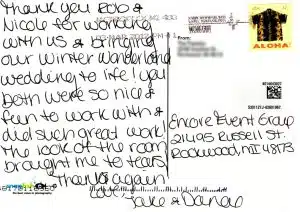 Thank you Rob &
Nicole for working
with us & bringing
our winter wonderland
wedding to life! You
both were so nice &
fun to work with &
did such great work!
The look of the room
brought me to tears!
Thanks again!
Love,
Jake & Danae
From:
ALOHA
Encore Event Group
21495 Russell St.
Rockwood, MI 48173